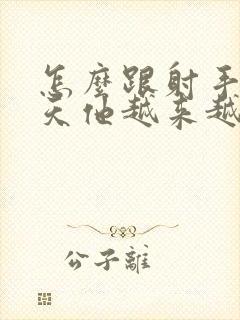 怎麼跟射手
天他越来越
公子離